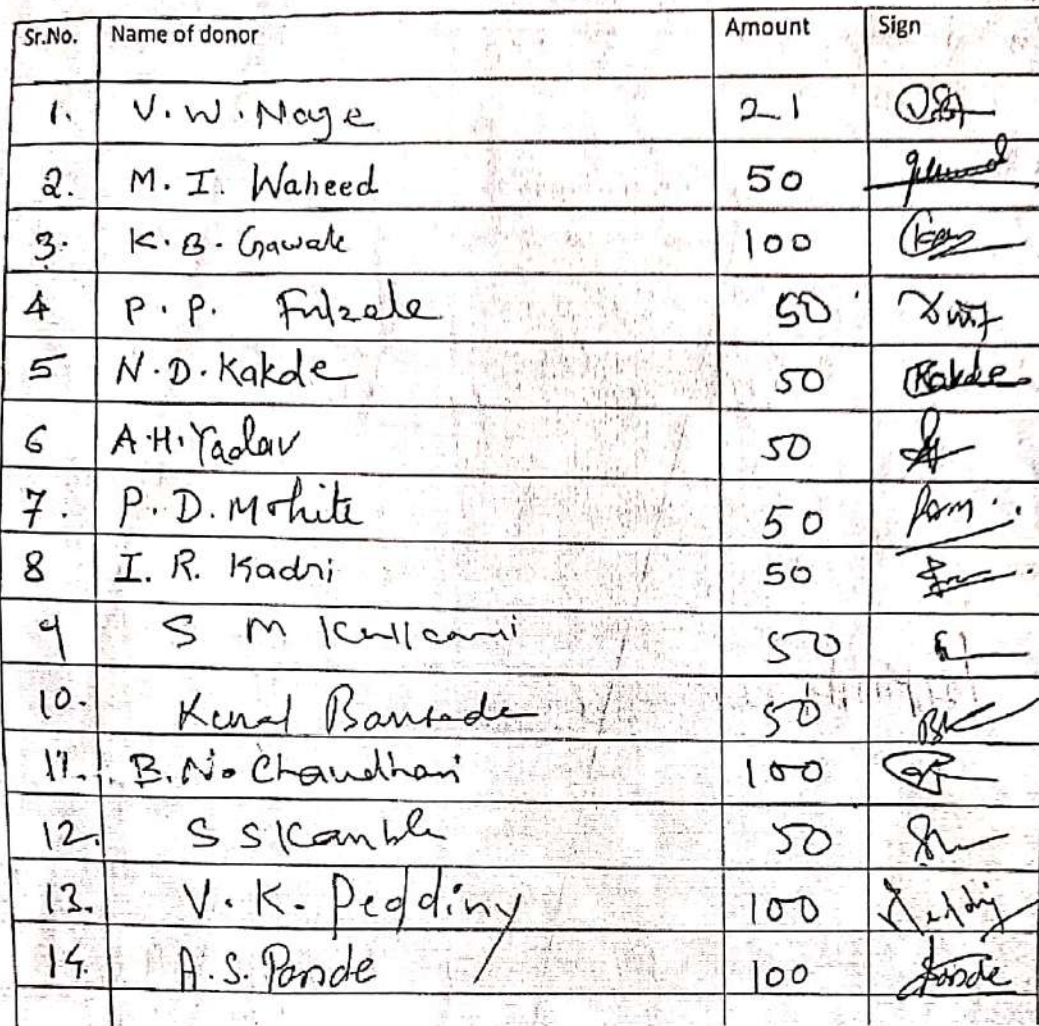 Sr.No. Name of donor Amount Sign
1. V. W. Nage 21
2. M. I. Waheed 50
3. K. B. Gawale 100
4 P. P. Fulzele 50
5 N. D. Kakde 50 Kakde
6 A. H. Yadav 50
7. P. D. Mohite 50
8 I. R. Kadri 50
9 S M Kulkarni 50
10. Kunal Bansode 50
11. B. N. Chaudhari 100
12. S S Kamble 50
13. V. K. Peddiny 100
14. A. S. Pande 100 Pande